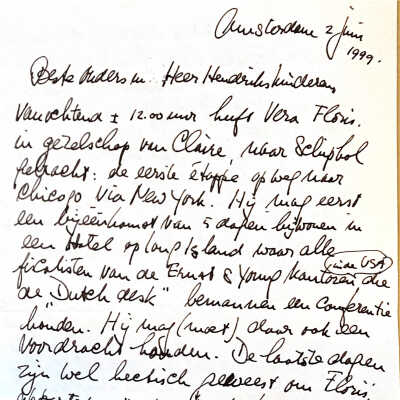 Amsterdam 2 juni
1999.
Beste ouders en Heer Hendrikskinderen
Vanochtend ± 12.00 uur heeft Vera Floris,
in gezelschap van Claire, naar Schiphol
gebracht: de eerste étappe op weg naar
Chicago via New York. Hij mag eerst
een bijeenkomst van 5 dagen bijwonen in
een Hotel op Long Island waar alle
fiscalisten van de Ernst & Young kantoren in de USA die
de "Dutch desk" bemannen een conferentie
houden. Hij mag (moet) daar ook een
voordracht houden. De laatste dagen
zijn wel hectisch geweest om Floris